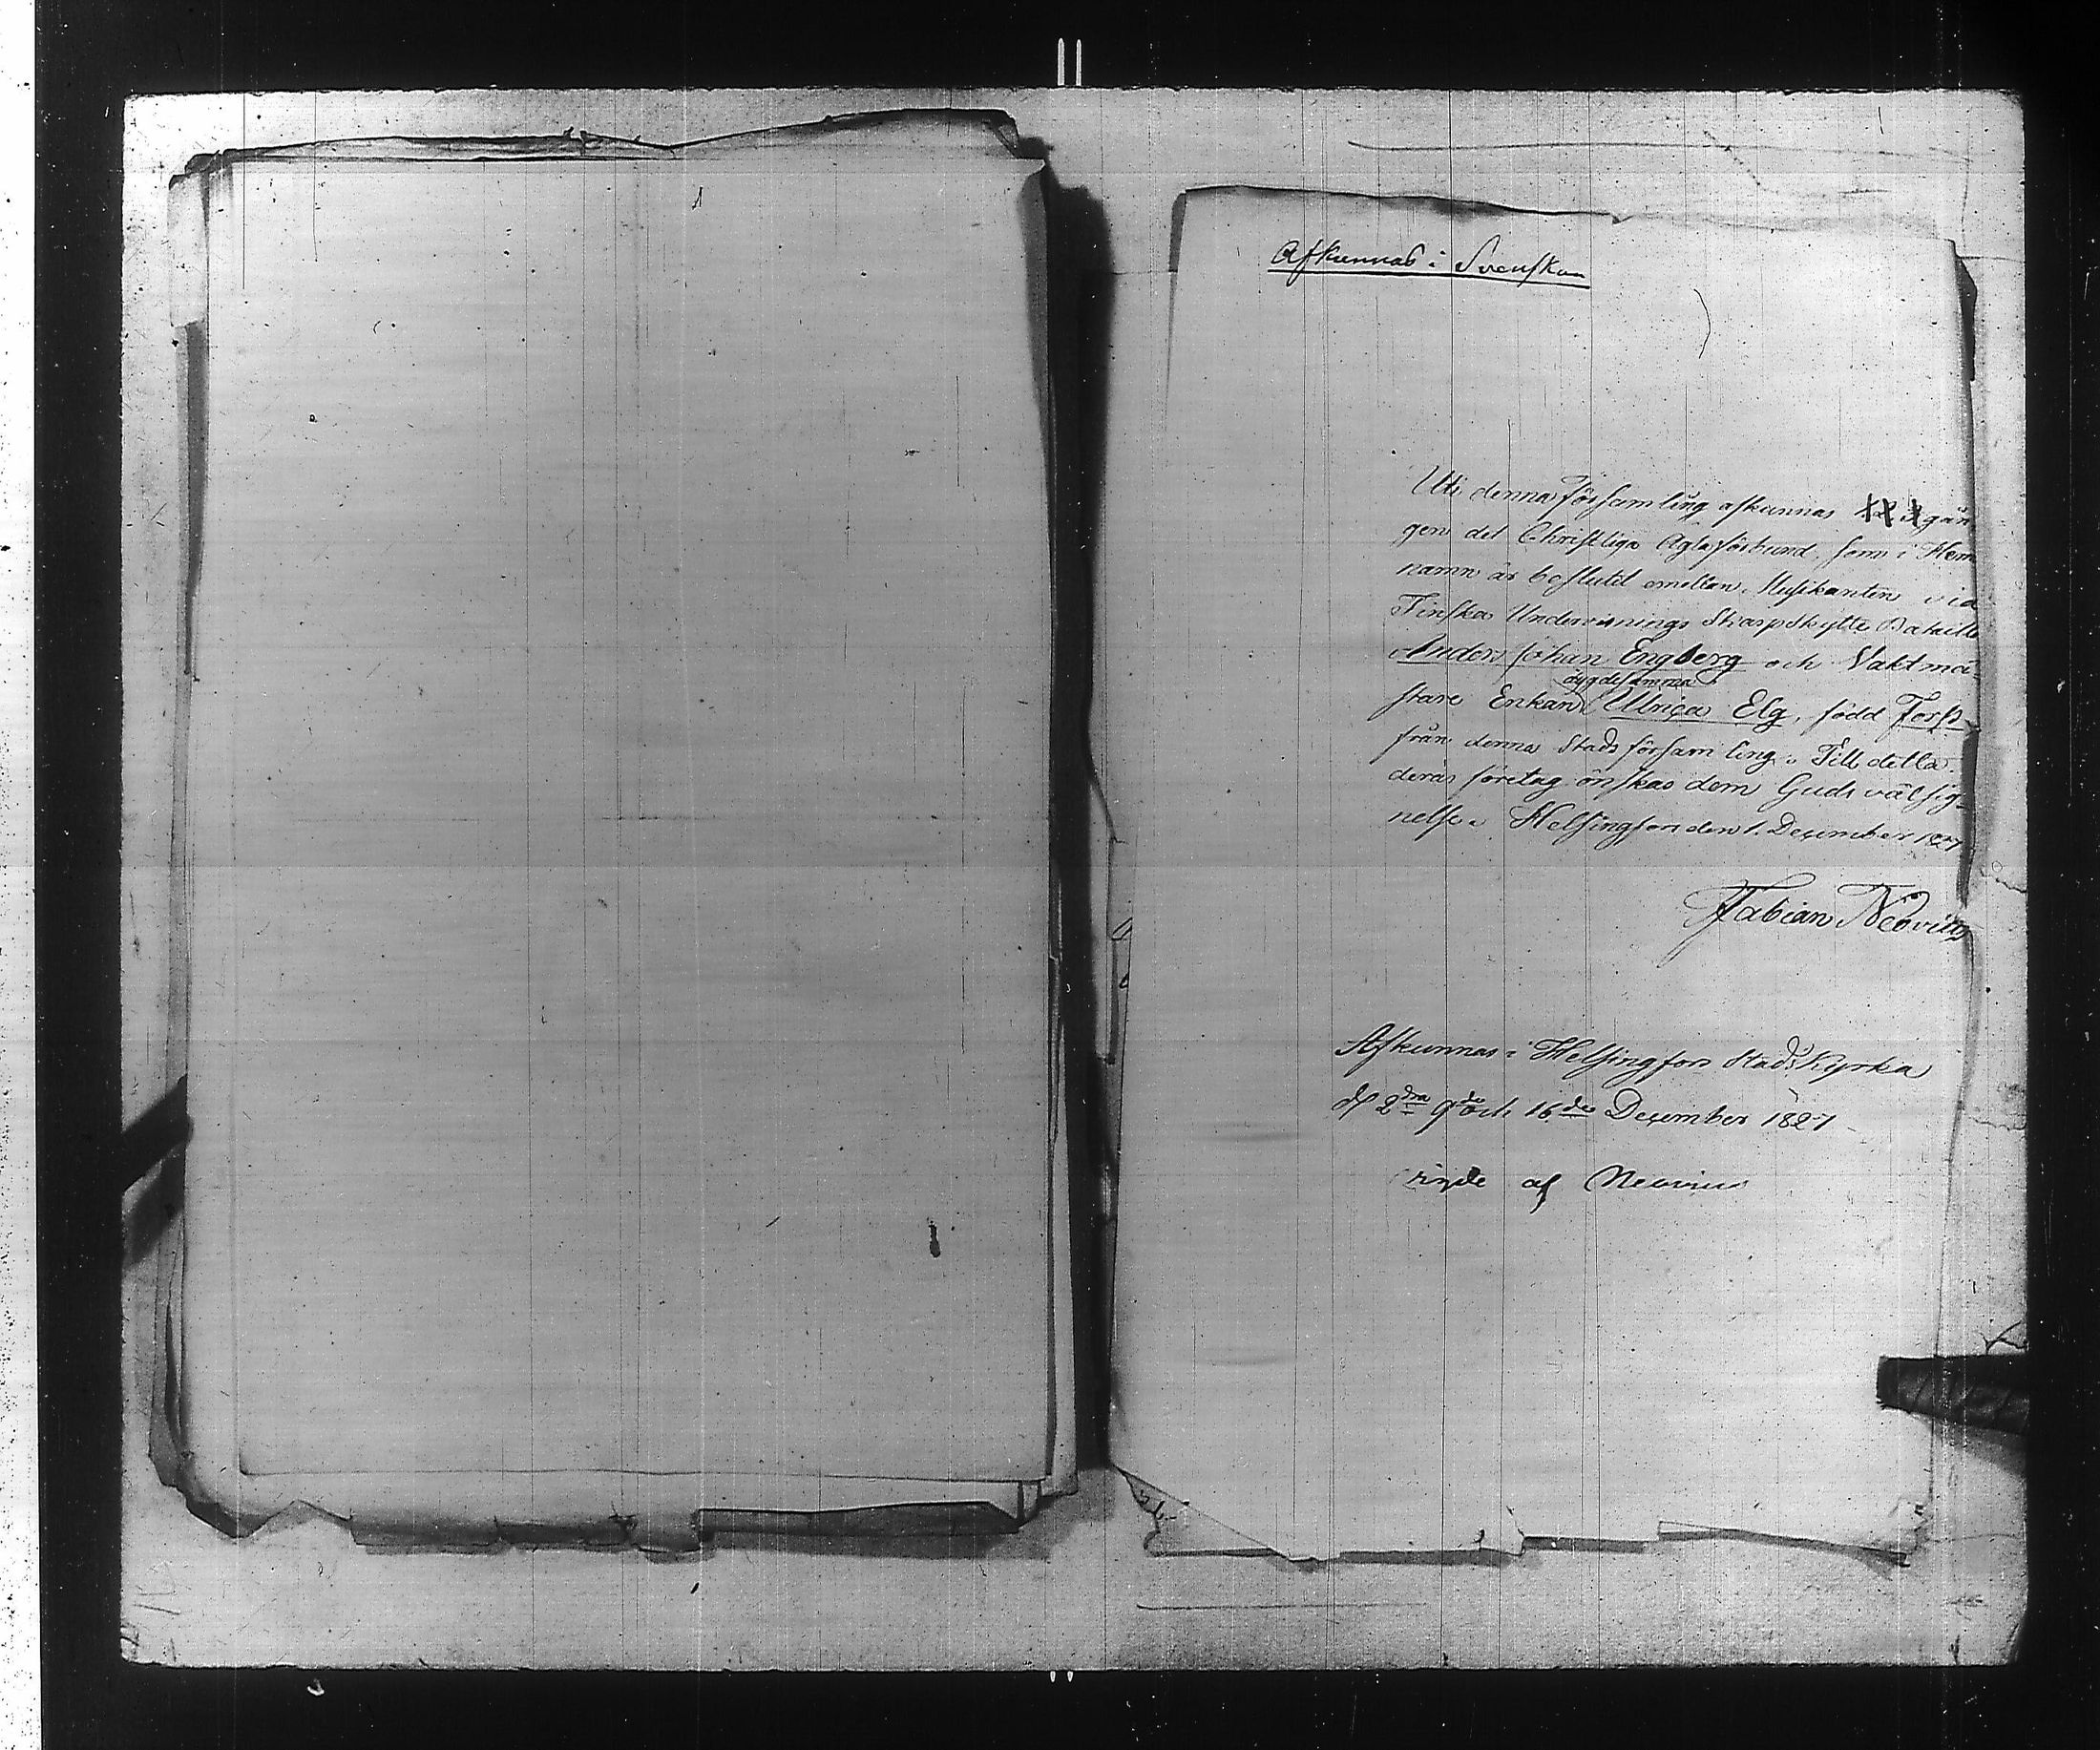 Afkunnas i Svenskan
Uti denna församling afkunnas gån
gen det Christliga Ägtaförbund, som i Herr
namn är beslutit emellan Musikanten vid
Finska Undervisnings Skarpskytte Bataill
Anders Johan Engberg och Vaktmä-
dygdesamma
stare Enkan Ulrica Elg, född Forss
från denna Stads församling. Till detta
deras företag önskas dem Guds välsig-
nelse. Helsingfors den 1. December 1827
Fabian Neovius
Afkunnas i Helsingfors Stads Kyrka
d 2dra 9de och 16de December 1827
af Neovius